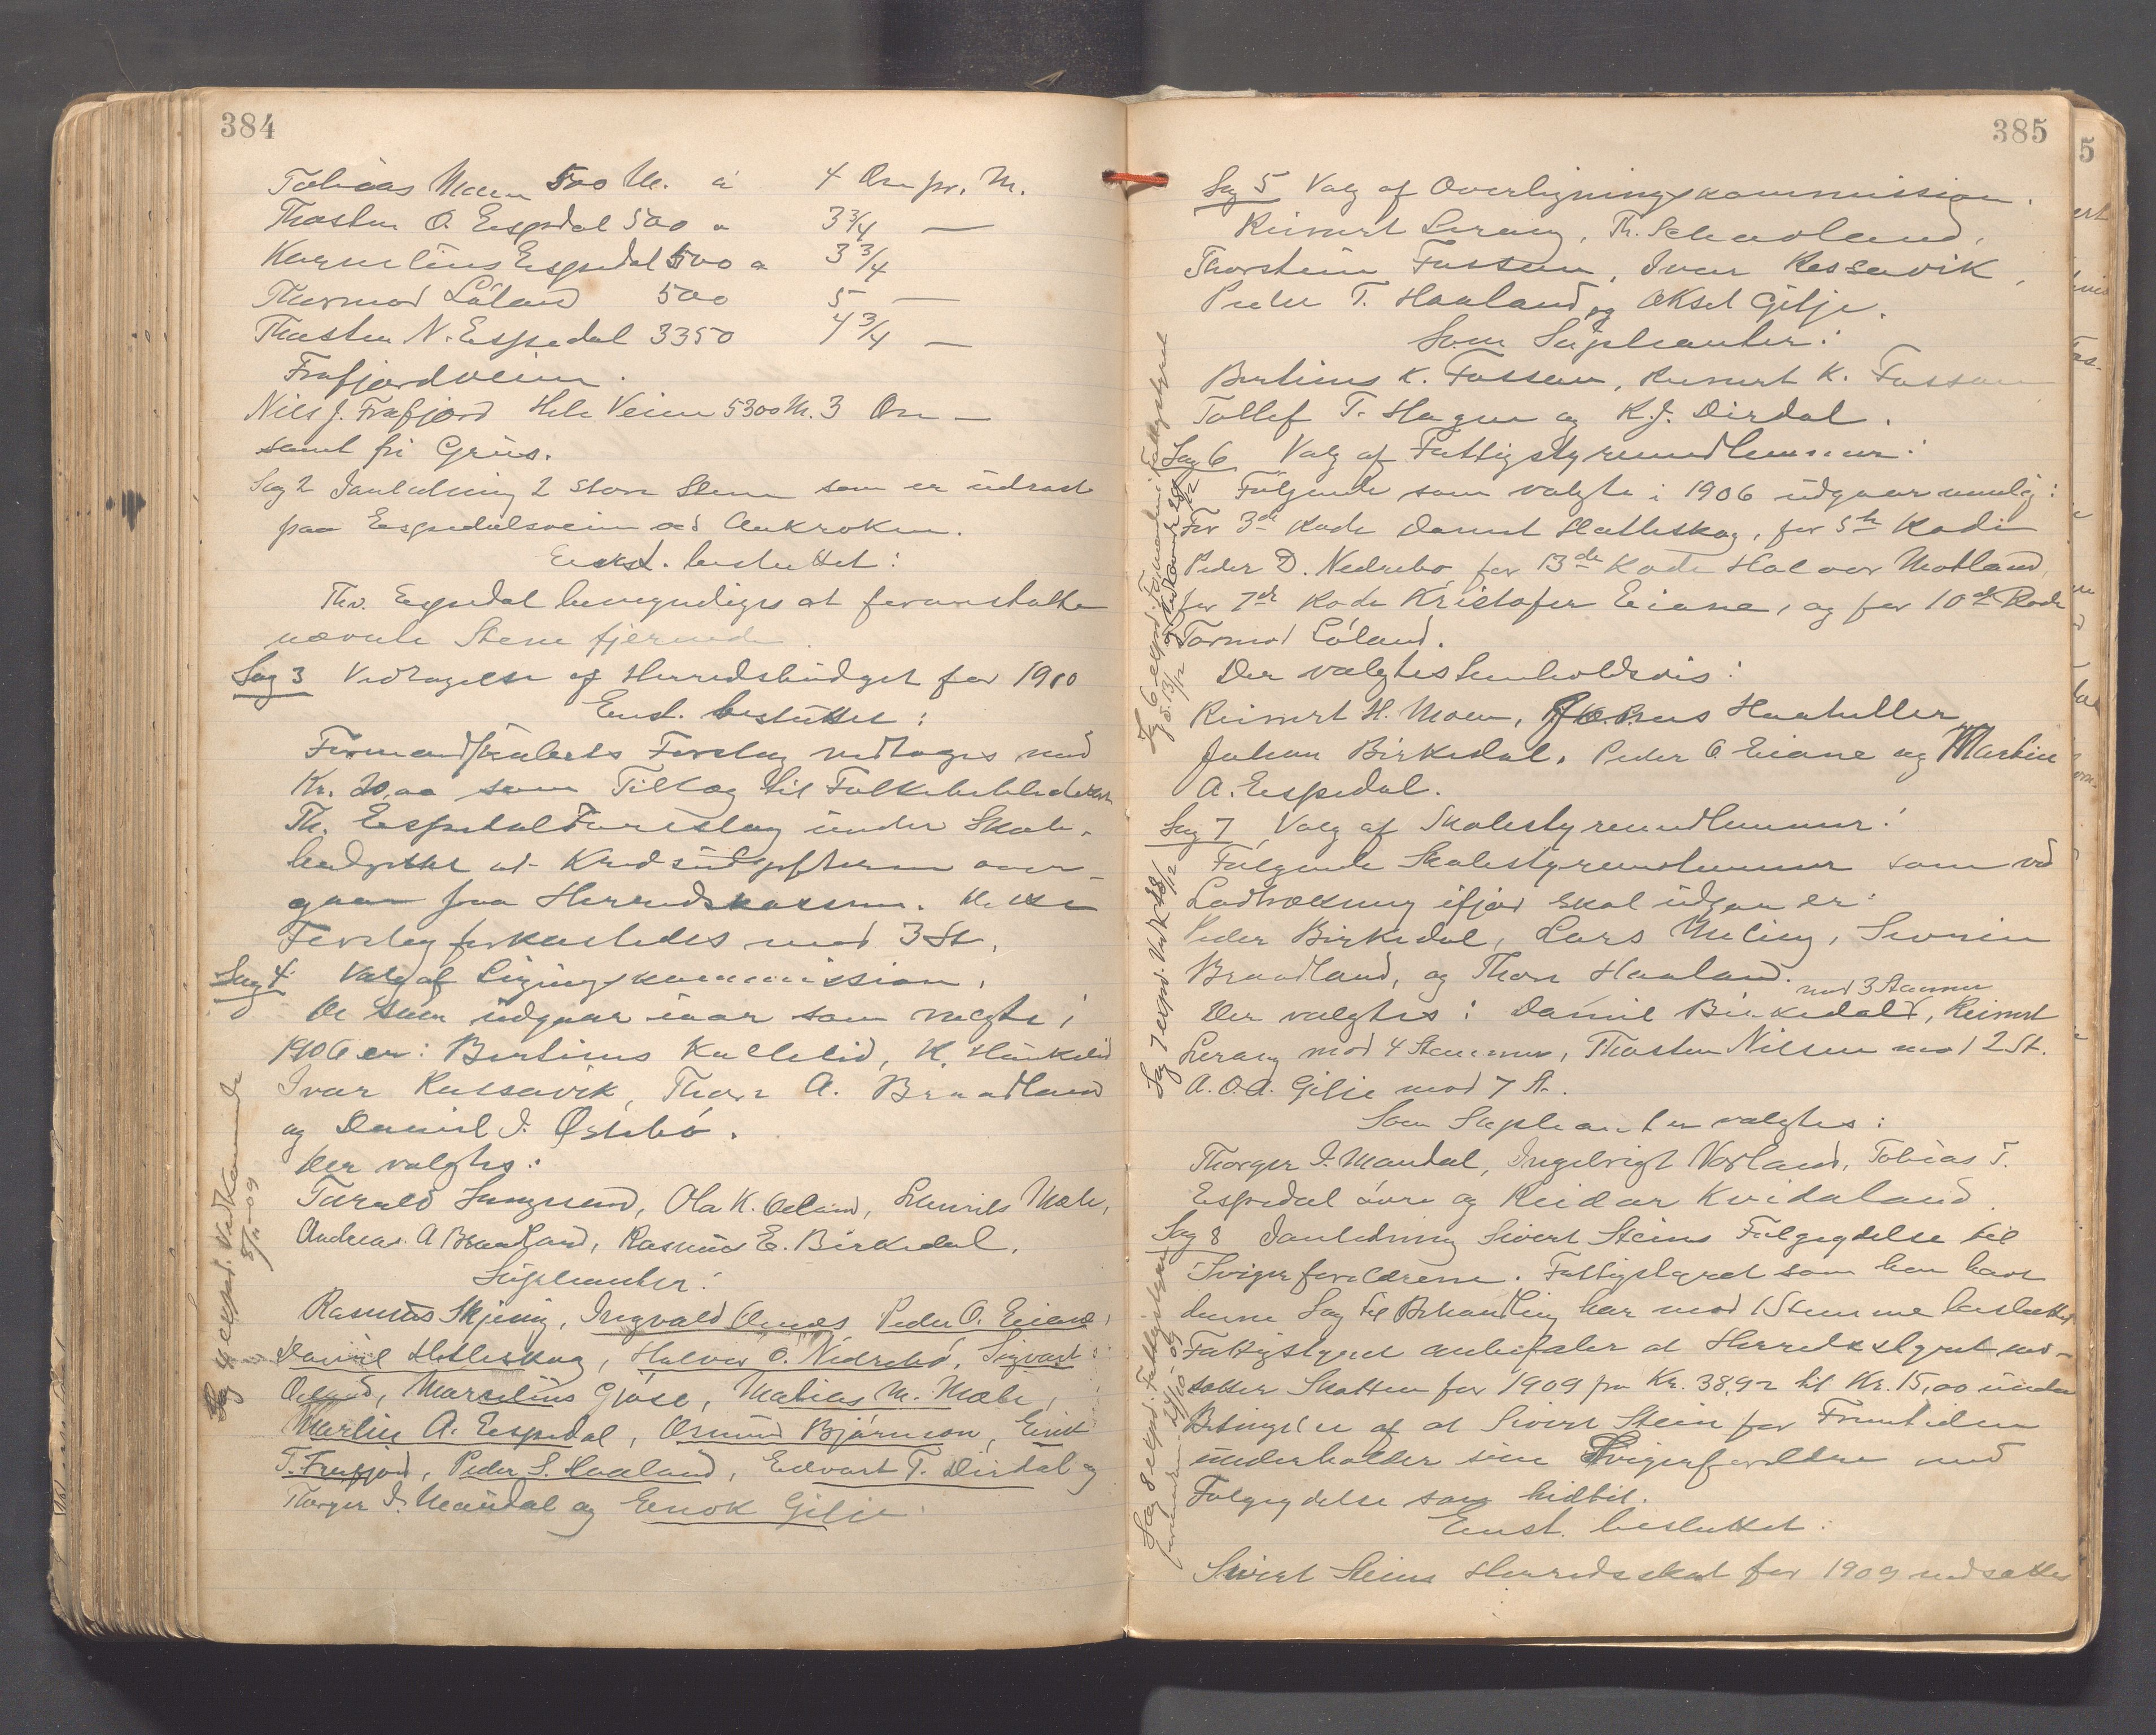 384
Tobias Moen 500 M. a 4 Øre pr. M.
Thosten O. Espedal 500 a 3 3/4 —
Karnelius Espedal 500 a 3 3/4
Thormod Löland 500 5 —
Thosten N. Espedal 3350 4 3/4 —
Frafjordveien.
Nils J. Frafjord Hele Veien 5300 M. 3 Øre —
samt fri Grus.
Sag 2 Ianledning 2 store Stene som er udraste
paa Espedalsveien ved Aukroken.
Enst. besluttet:
Th. Espedal bemyndiges at foranstalte
nævnte Stene fjernede
Sag 3 Vedtagelse af Herredsbudget for 1910
Enst. besluttet:
Formandskabets Forslag vedtages med
Kr. 20,00 som Tillæg til Folkebibliotheket
Th. Espedal Foreslag under Skole-
budgettet at Kredsudgifterne over-
gaar paa Herredskassen. Dette
Forslag forkastedes mod 3 St.
Sag 4 Valg af Ligningskommission.
De som udgaar iaar som valgte i
1906 er: Bertinus Kallelid, K. Hunkelid
Ivar Rassavik, Thore A. Braadland
og Daniel I. Östebö.
Der valgtes:
Tarald Ola K. Oeland, Laurits Mæle,
Andreas A Braadland, Rasmus E. Birkedal.
Supleanter:
Rasmus Skjæveg, Ingvald Peder O. Eiane,
Daniel Hetleskog, Halvor O. Nedrebö, Sigvart
Oeland, Marselius Gjöse, Matias M. Mæle,
Martin A. Espedal, Osmund Björnson, Enok
T. Frafjord, Peder S. Haaland, Edvart T. Dirdal og
Thorger I. Maudal og Enok Gilje.
Sag 4 expd. Vedkommende
5/11-09
385
Sag 5 Valg af Overligningskommission.
Reinert Leraug, Th. Schavland,
Thorstein Fossan, Ivar Ressavik,
Peder T. Haaland og Aksel Gilje.
Som Supleanter:
Bertinus K. Fossan, Reinert K. Fossan
Tollef T. Hagen og K. J. Dirdal.
Sag 6 Valg af Fattigstyremedlemmer:
Fölgende som valgte i 1906 udgaar nemlig:
For 3de Rode Daniel Hatleskog, for 5te Rode
Peder D. Nedrebö, for 13de Rode Halvor Motland
for 7de Rode Kristofer Eiane, og for 10de Rode
Tormod Löland.
Der valgtes henholdsvis:
Reinert H. Moen, Haaheller
Johan Birkedal, Peder O Eiane og Martin
A. Espedal.
Sag 7 Valg af Skolestyremedlemmer:
Fölgende Skolestyremedlemmer som ved
Lodtrækning ifjor skal udgaa er:
Peder Birkedal, Lars Meling, Severin
Braadland, og Thore Haaland.
mod 3 Stemmer
Der valgtes: Daniel Birkedal, Reinert
Leraug mod 4 Stemmer, Thosten Nilsen mod 2 St.
A. O. A. Gilje mod 7 St.
Som Supleanter valgtes:
Thorger I. Maudal, Ingebrigt Norland, Tobias T.
Espedal övre og Reidar Kvidaland.
Sag 8 Ianledning Sivert Steins Fölgeydelse til
Svigerforældrene. Fattigstyret som har havt
denne Sag til Behandling har mod 1 Stemme besluttet
Fattigstyret anbefaler at Herredsstyret ned-
sætter Skatten for 1909 fra Kr. 38,92 til Kr. 15,00 under
Betingelse af at Sivert Stein for Fremtiden
underholder sine Svigerforældre med
Fölgeydelse som hidtil.
Enst. besluttet:
Sivert Steins Herredsskat for 1909 nedsættes
Sag 6 expd. Formanden i Fattigstyret
d. 13/12 og Vedkommende 28/12
Sag 7 expd. Vedk. 28/12
Sag 8 expd. Fattigstyrets
formand
5